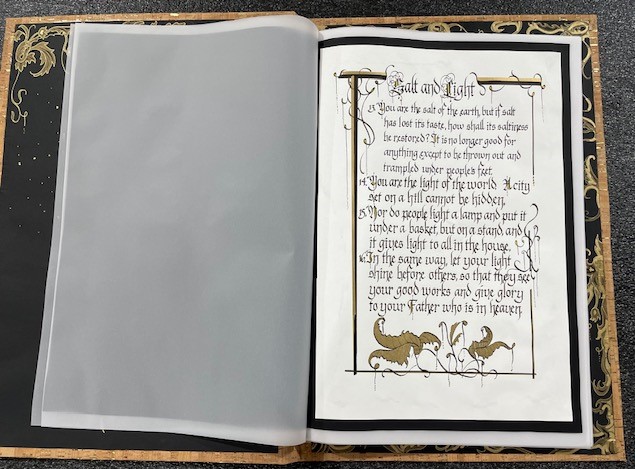 Salt and Light
13. You are the salt of the earth, but if salt
has lost it's taste, how shall its saltiness
be restored? It is no longer good for
anything except to be thrown out and
trampled under people's feet.
14. You are the light of the world A city
set on a hill cannot be hidden.
15. Nor do people light a lamp and put it
under a basket, but on a stand, and
it gives light to all in the house.
16. In the same way, let your light
shine before others, so that they see
your good works and give glory
to your Father who is in heaven.